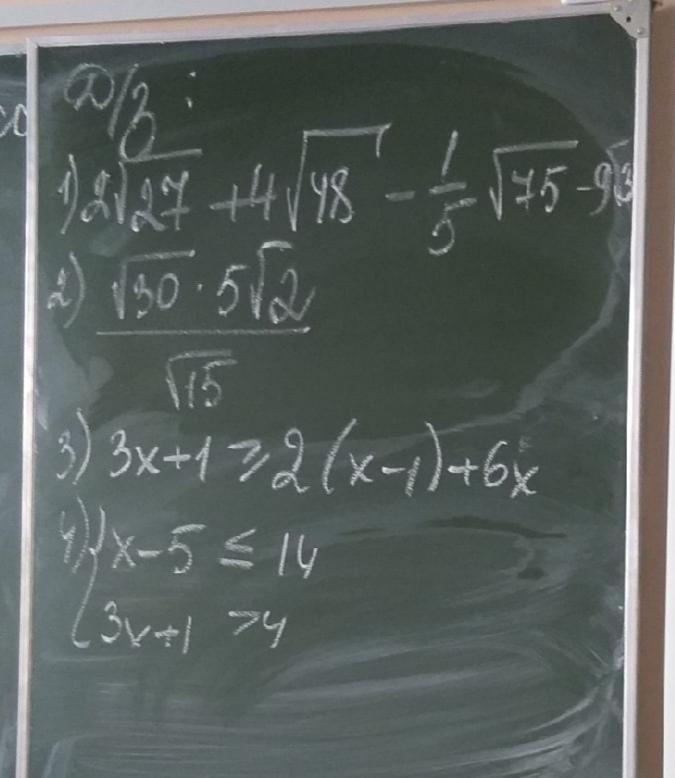 Д/з:
1) 2√27 + 4√48 - 1/5 √75 - 9√3
2) √30 · 5√2
√15
3) 3x+1 ⩾ 2(x-1)+6x
4) { x-5 ≤ 14
3x+1 >4